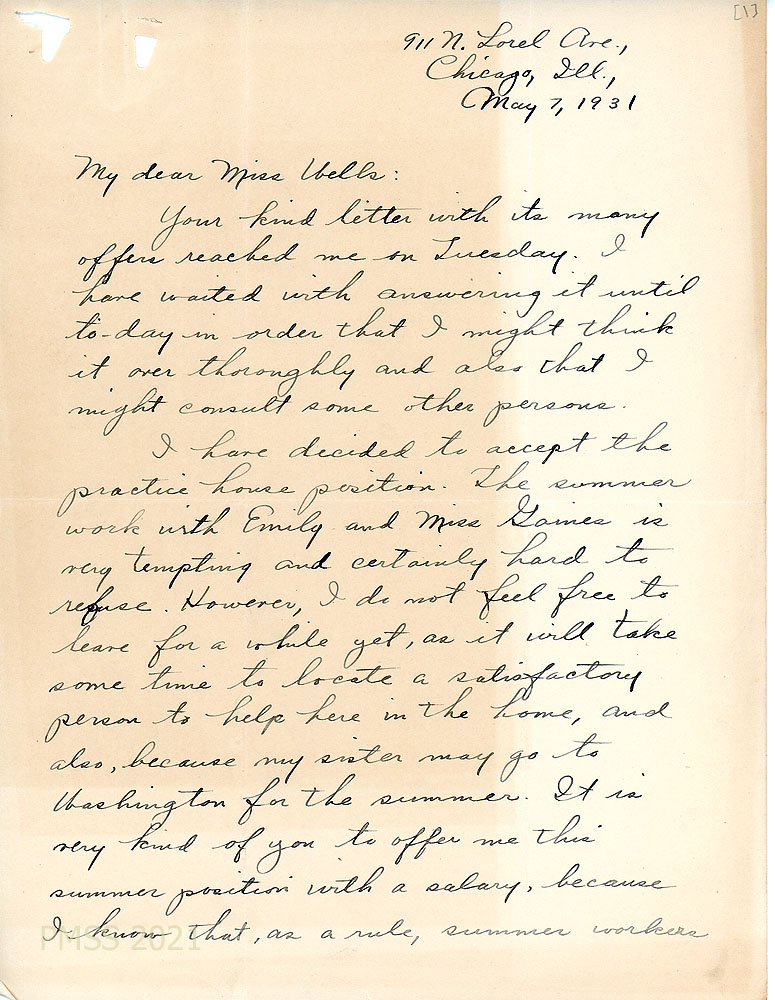 [1]
911 N. Lorel Ave.,
Chicago, Ill.,
May 7, 1931
My dear Miss Wells:
Your kind letter with its many
offers reached me on Tuesday. I
have waited with answering it until
to-day in order that I might think
it over thoroughly and also that I
might consult some other persons.
I have decided to accept the
practice house position. The summer
work with Emily and Miss Gaines is
very tempting and certainly hard to
refuse. However, I do not feel free to
leave for a while yet, as it will take
some time to locate a satisfactory
person to help here in the home, and
also, because my sister may go to
Washington for the summer. It is
very kind of you to offer me this
summer position with a salary, because
I know that, as a rule, summer workers
PMSS 2021